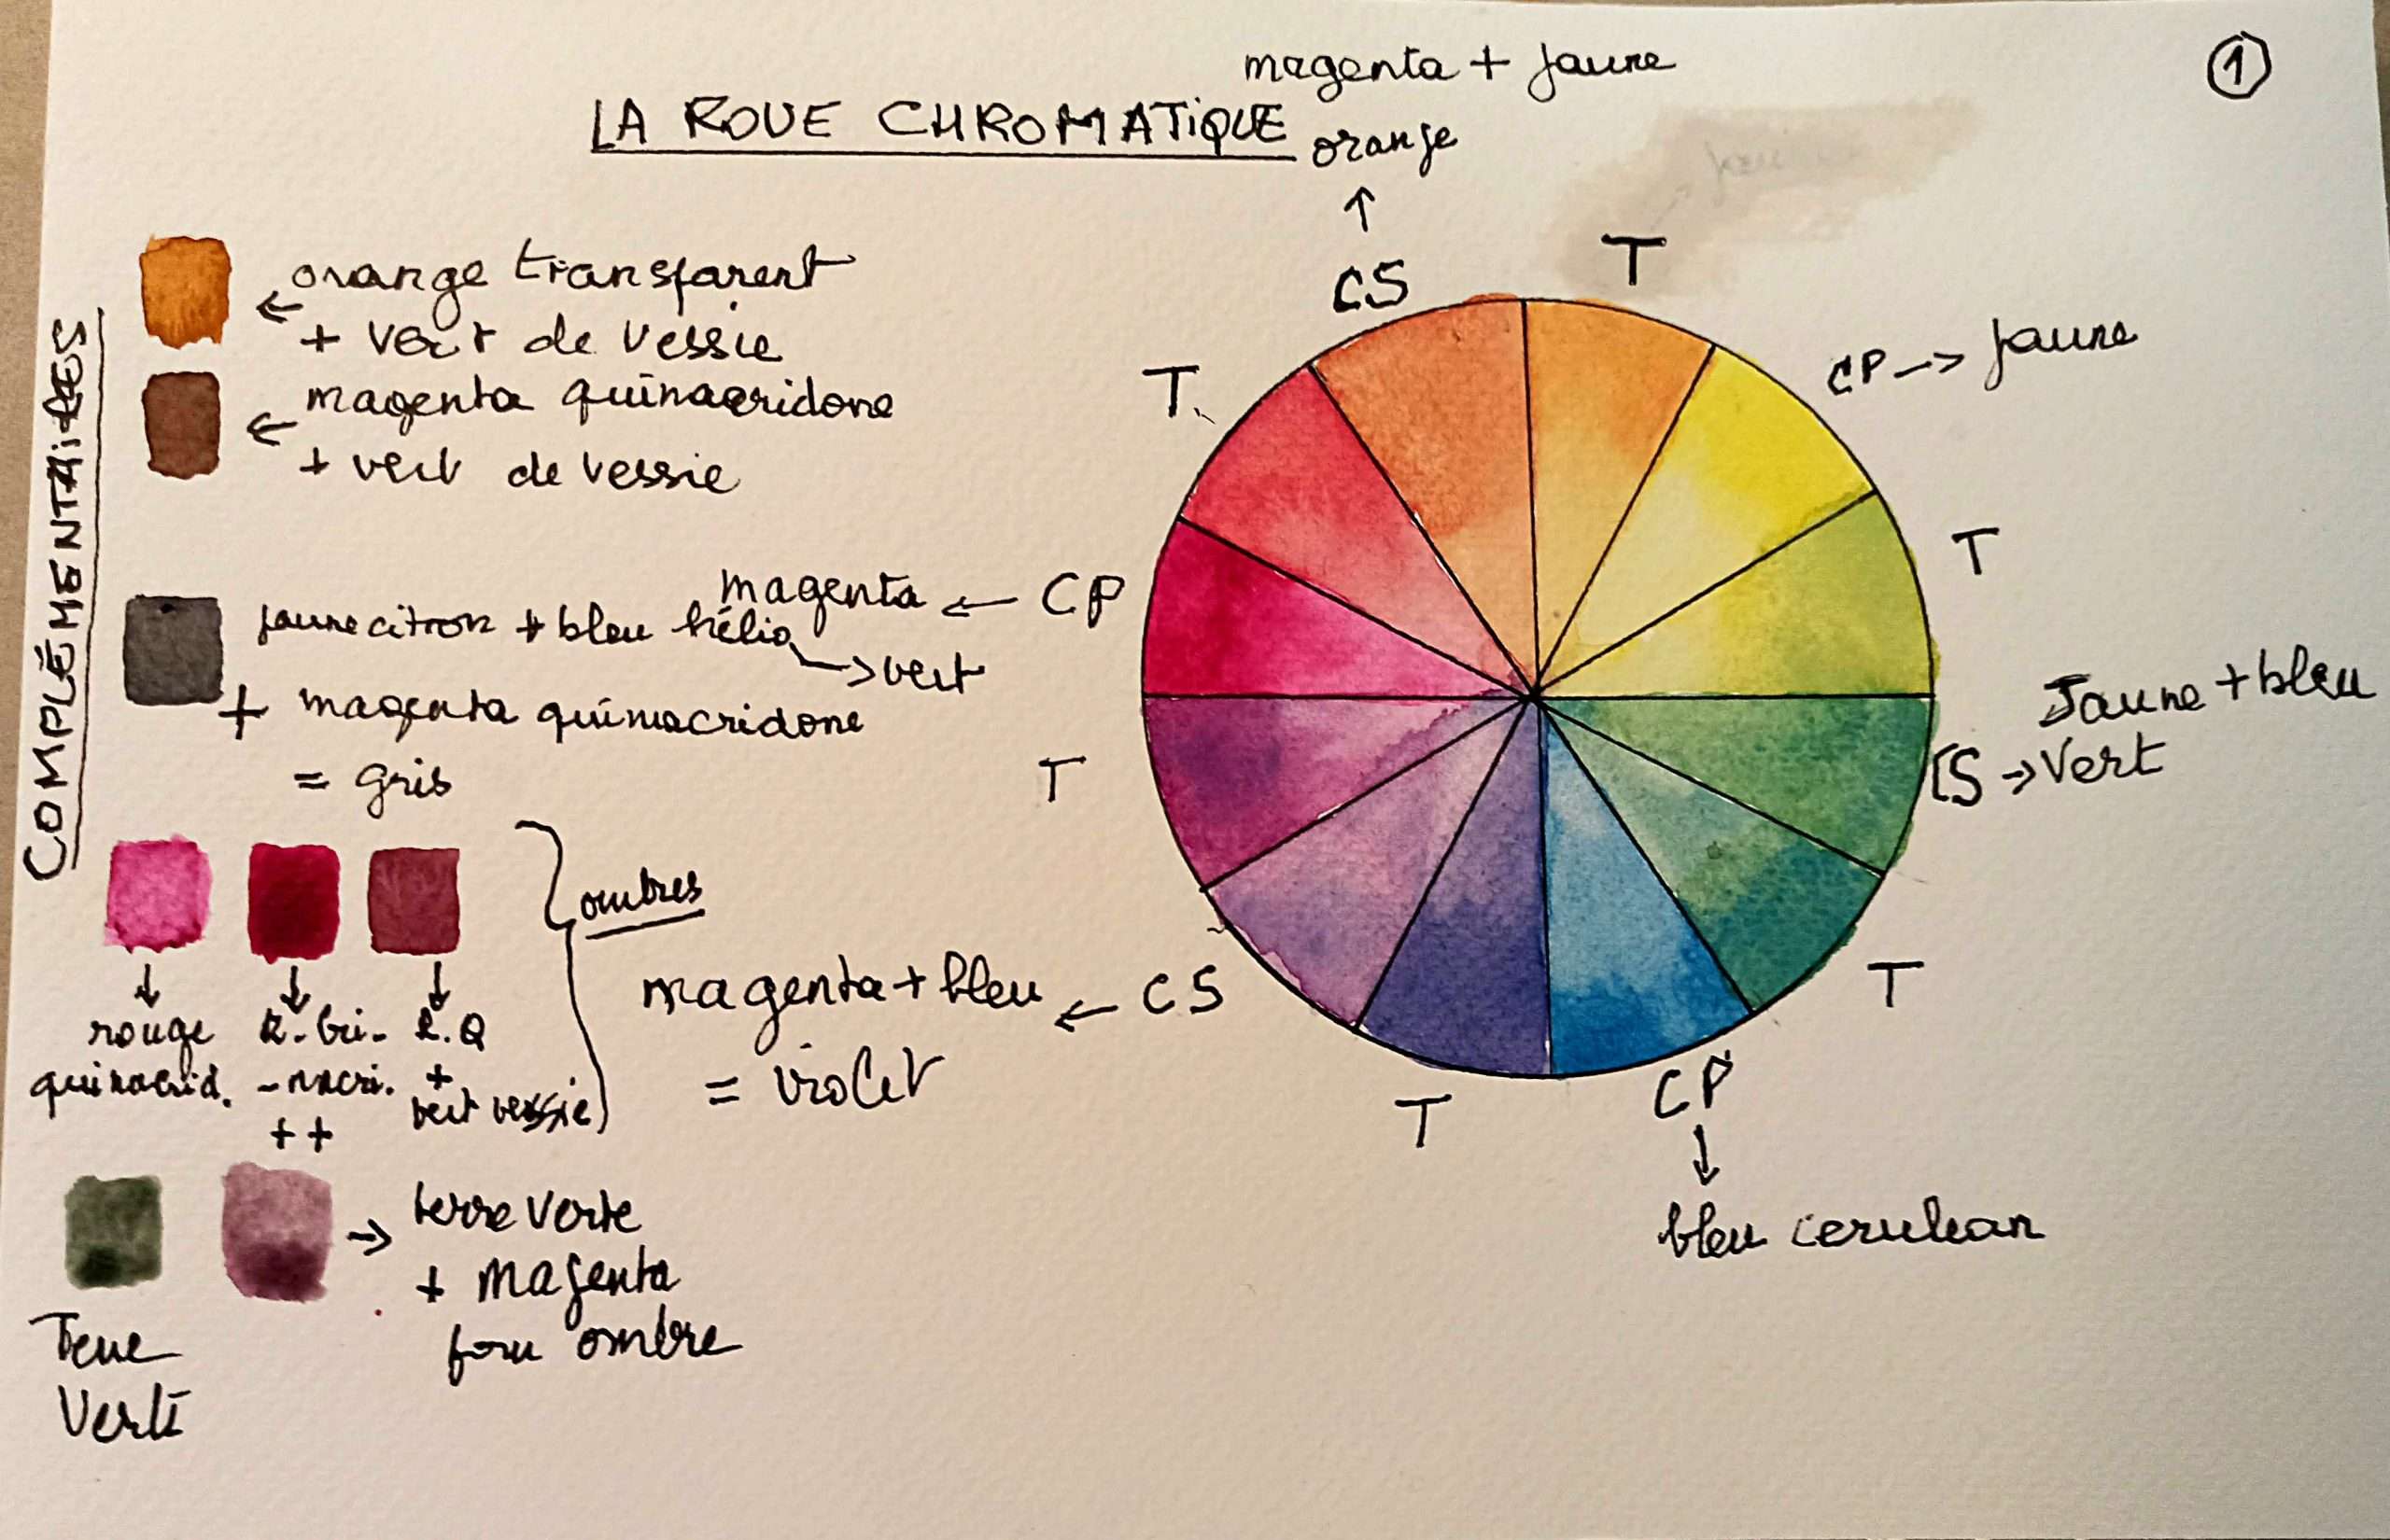 ①
magenta + jaune
LA ROUE CHROMATIQUE
orange
CS
T
CP → jaune
T
Jaune + bleu
CS → Vert
T
CP
bleu cerulean
T
magenta + bleu ← CS
= violet
T
magenta ← CP
T
COMPLÉMENTAIRES
orange transparent
+ vert de vessie
magenta quinacridone
+ vert de vessie
jaune citron + bleu hélio
→ vert
+ magenta quinacridone
= gris
ombres
rouge
quinacrid.
++
R.Q
+
vert vessie
Terre
Verte
terre verte
+ magenta
pour ombre